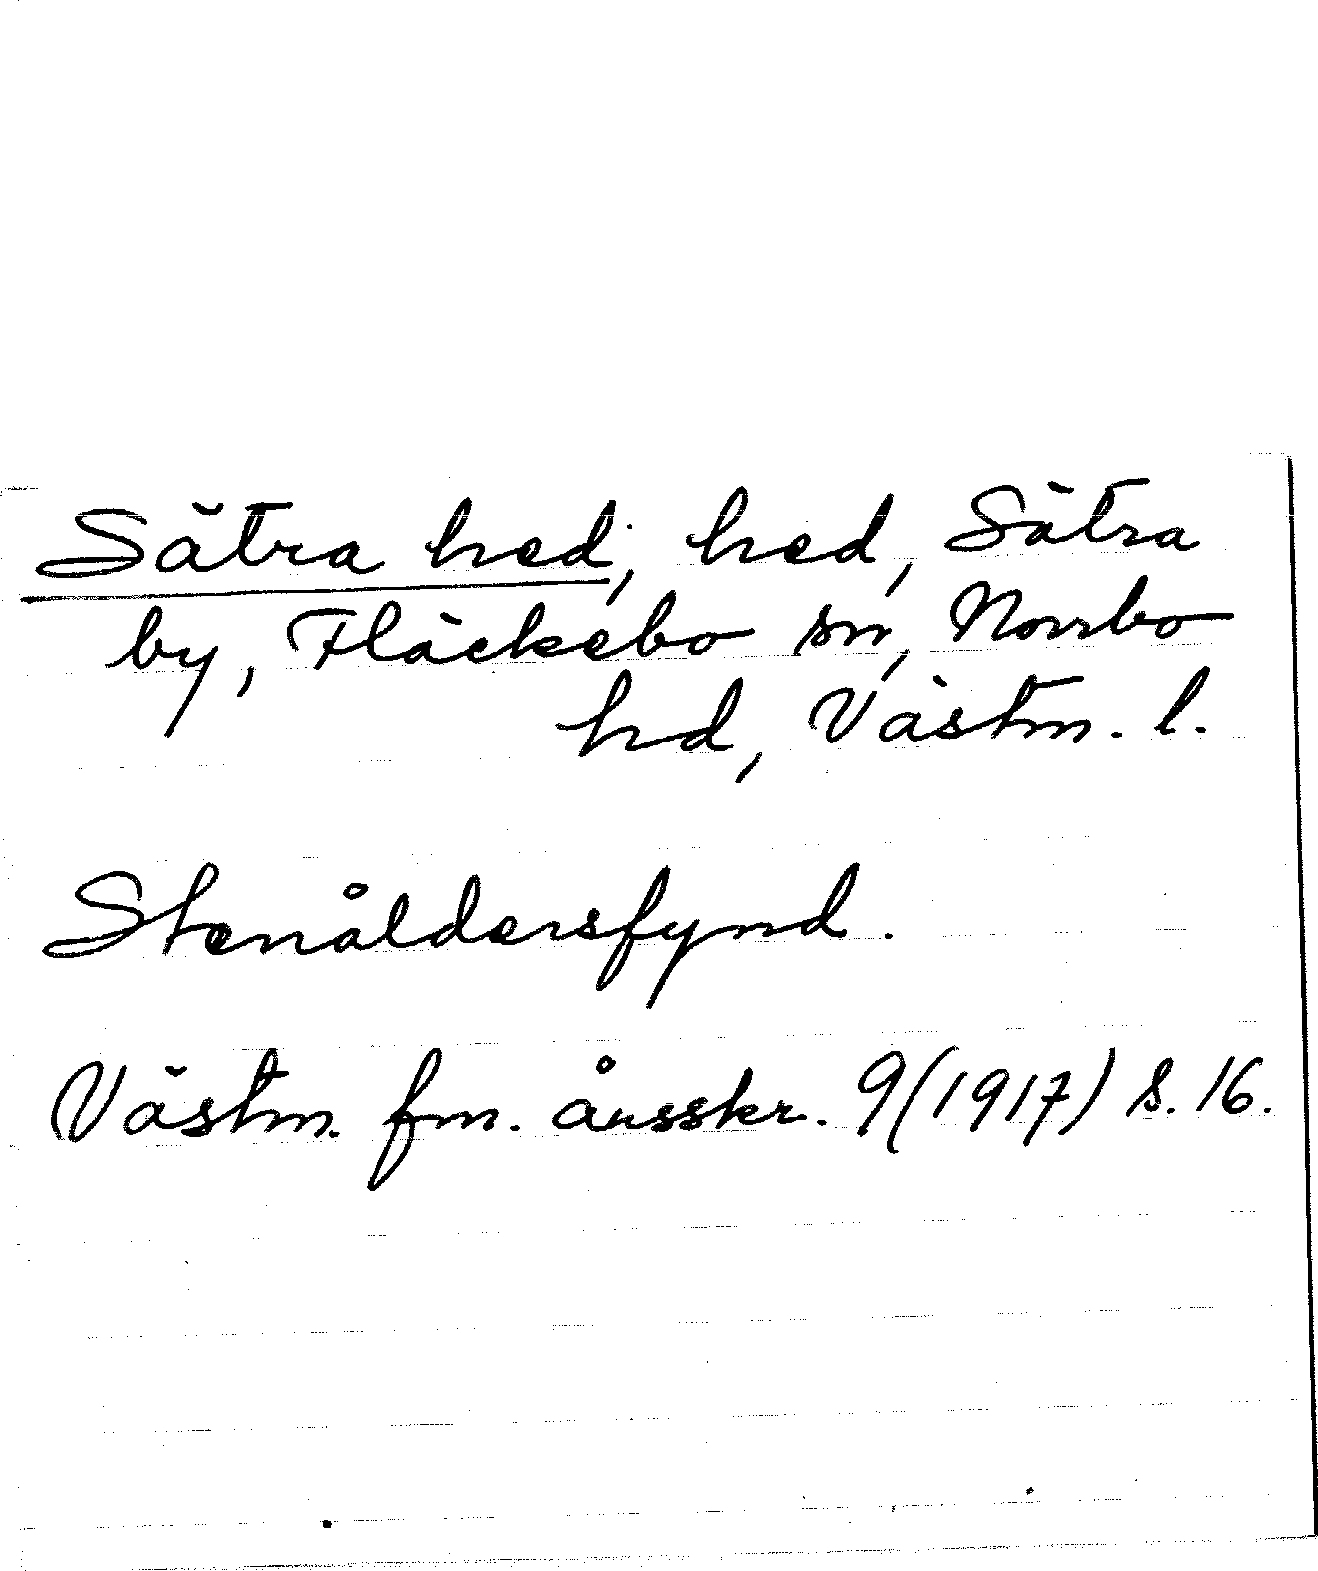 Sätra hed, hed, Sätra
by, Fläckebo sn, Norrbo
hd, Västm. l.
Stenåldersfynd.
Västm. fm. årsskr. 9(1917) s. 16.